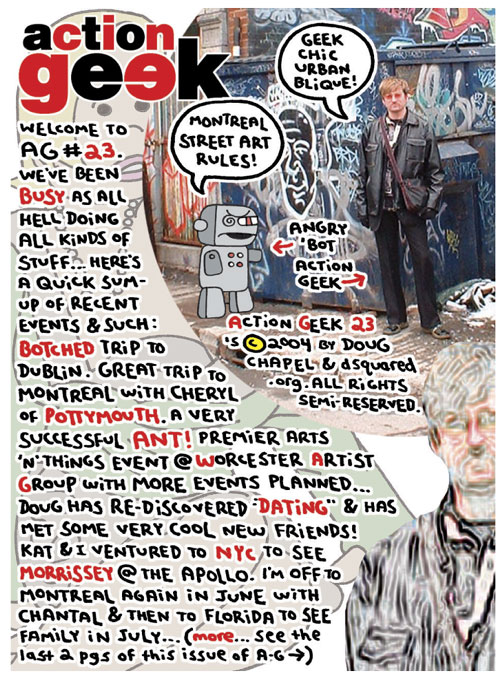 action
geek
WELCOME TO
AG # 23.
WE'VE BEEN
BUSY AS ALL
HELL DOING
ALL KINDS OF
STUFF... HERE'S
A QUICK SUM-
UP OF RECENT
EVENTS & SUCH:
BOTCHED TRIP TO
DUBLIN. GREAT TRIP TO
MONTREAL WITH CHERYL
OF POTTYMOUTH. A VERY
SUCCESSFUL ANT! PREMIER ARTS
'N'-THINGS EVENT @ WORCESTER ARTIST
GROUP WITH MORE EVENTS PLANNED...
DOUG HAS RE-DISCOVERED "DATING" & HAS
MET SOME VERY COOL NEW FRIENDS!
KAT & I VENTURED TO NYC TO SEE
MORRISSEY @ THE APOLLO. I'M OFF TO
MONTREAL AGAIN IN JUNE WITH
CHANTAL & THEN TO FLORIDA TO SEE
FAMILY IN JULY... (more... see the
last 2 pgs of this issue of A-G →)
GEEK
CHIC
URBAN
BLIQUE!
MONTREAL
STREET ART
RULES!
ANGRY
'BOT
ACTION
GEEK
ACTION GEEK 23
is © 2004 BY DOUG
CHAPEL & dsquared
.org. ALL RIGHTS
SEMI-RESERVED.